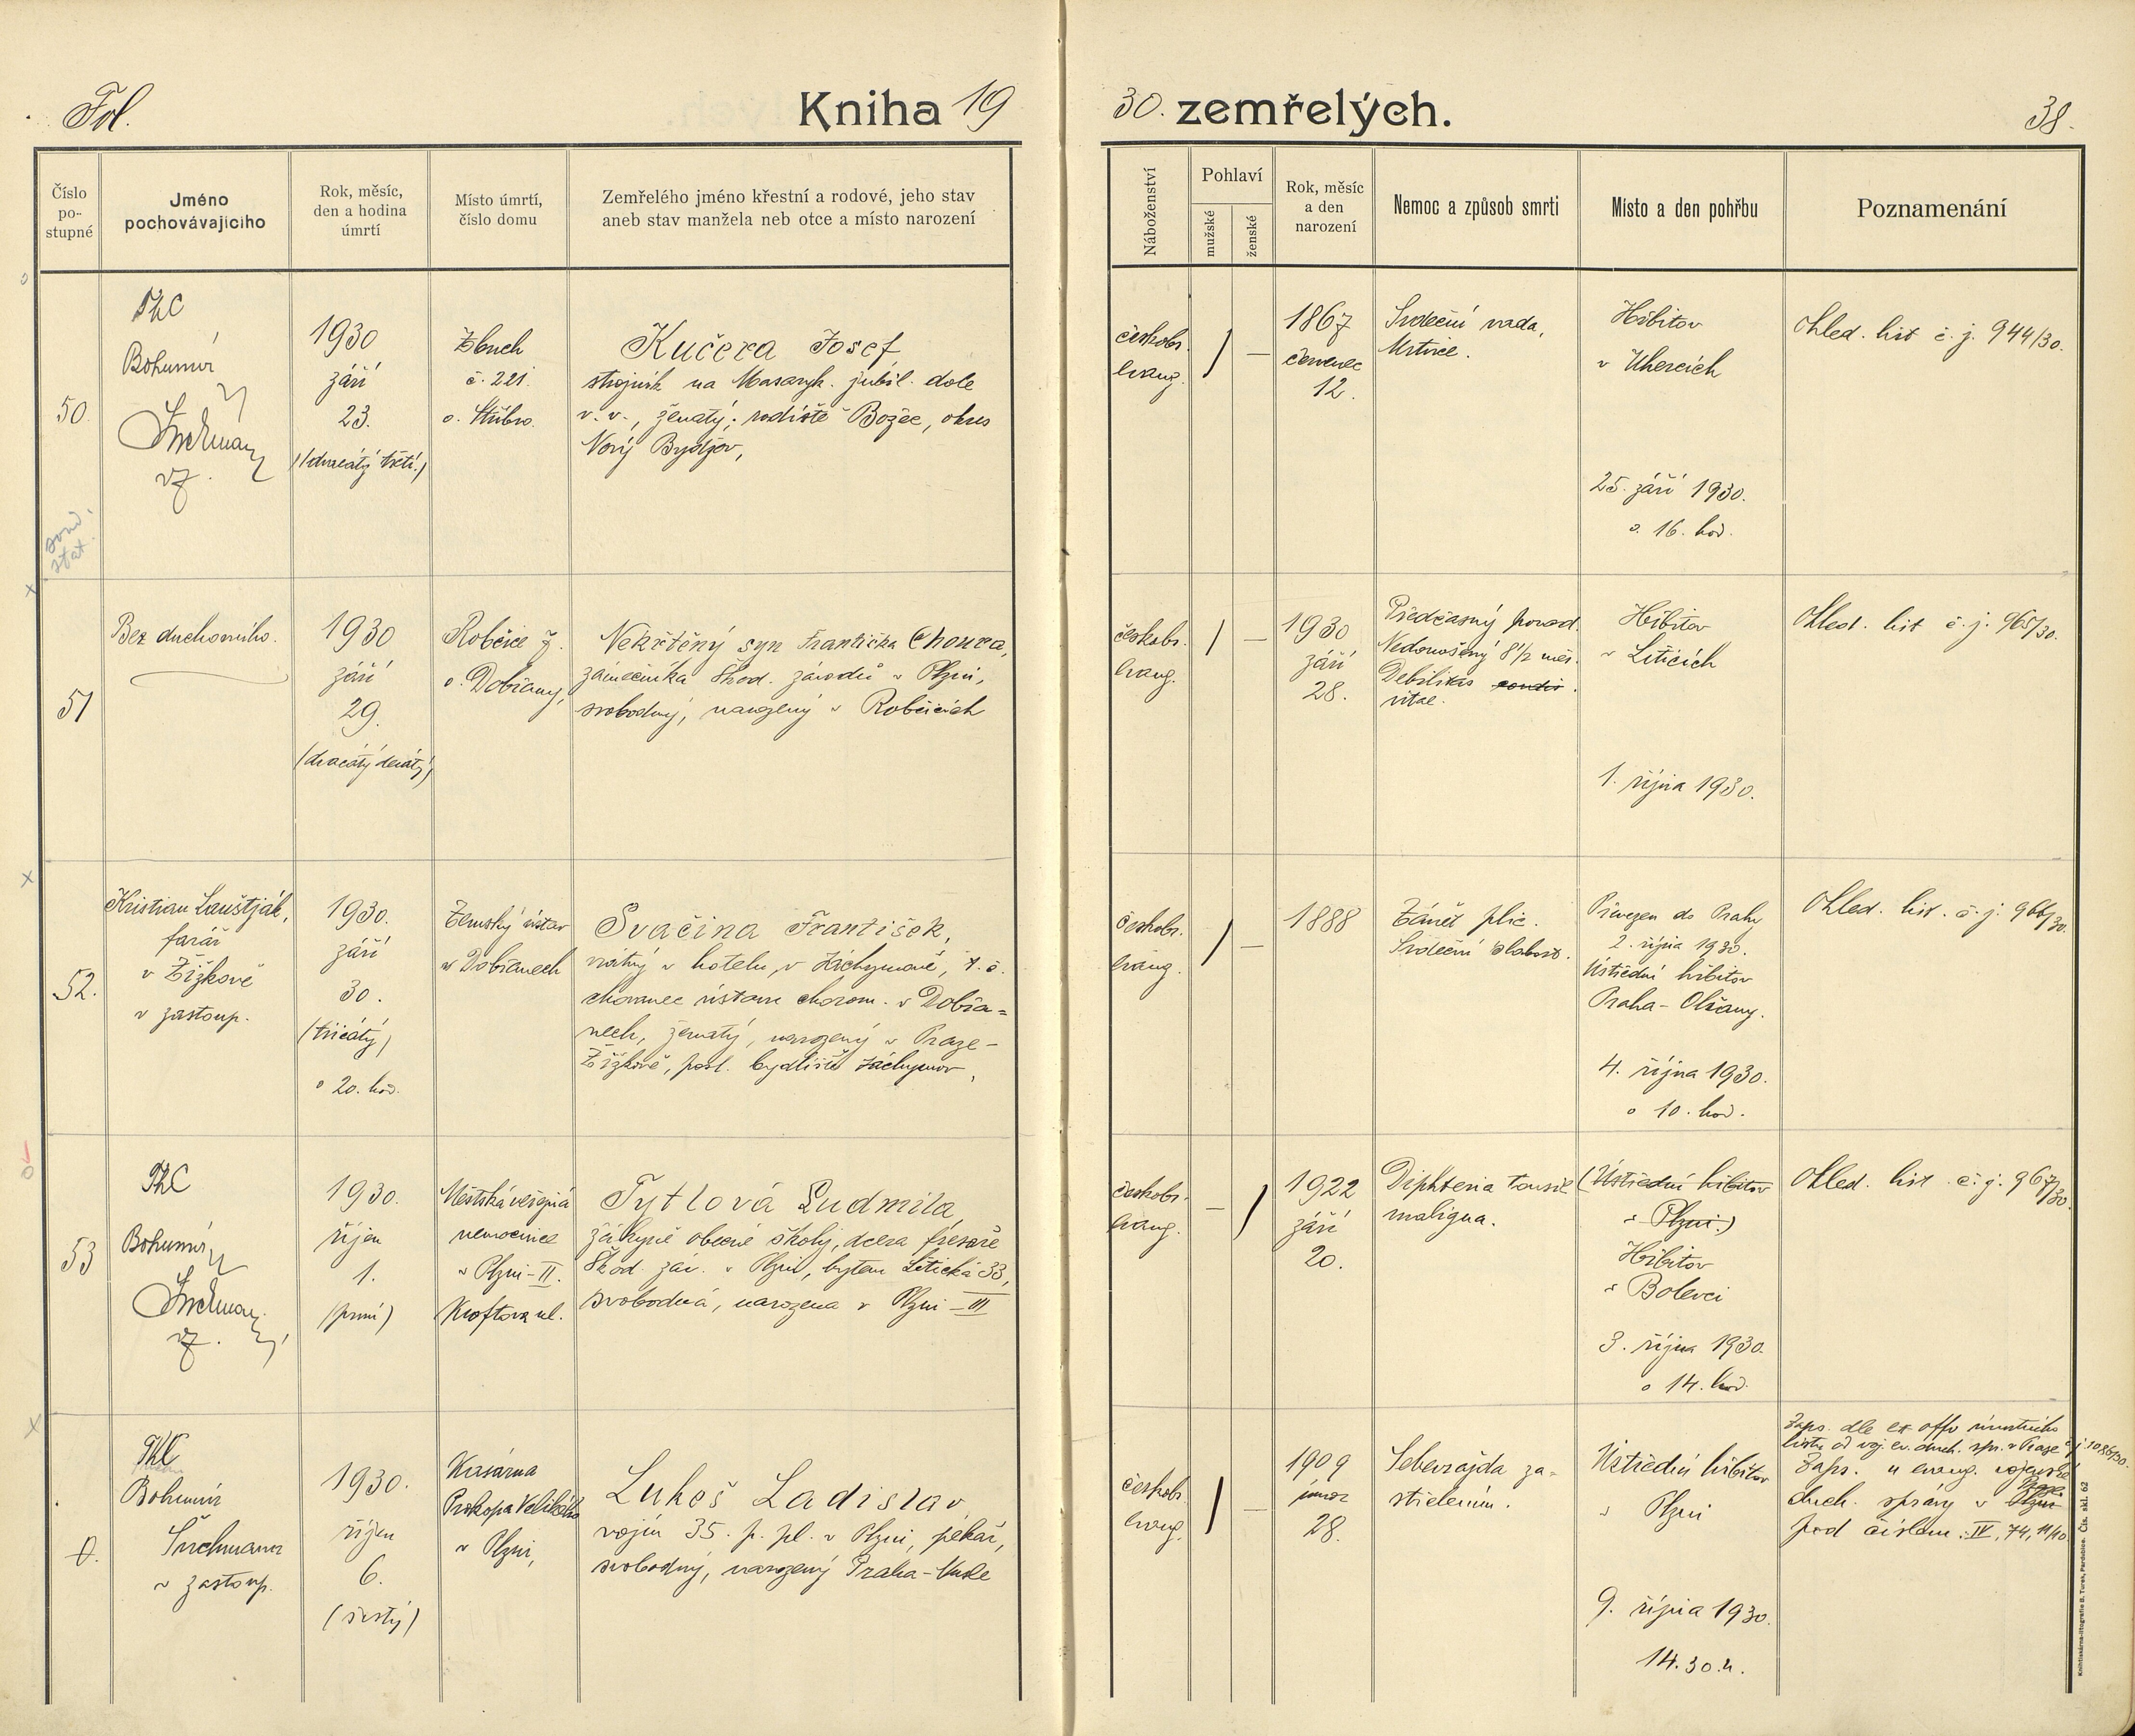 Fol.
Kniha 1930. zemřelých.
38.
Číslo
po-
stupné
Jméno
pochovávajícího
Rok, měsíc,
den a hodina
úmrtí
Místo úmrtí,
číslo domu
Zemřelého jméno křestní a rodové, jeho stav
aneb stav manžela neb otce a místo narození
Náboženství
Pohlaví
mužské
ženské
Rok, měsíc
a den
narození
Nemoc a způsob smrti
Místo a den pohřbu
Poznamenání
50.
ThC
Bohumír
vz.
1930
září
23.
(dvacátý třetí.)
Zbuch
č. 221.
o. Stříbro.
Kučera Josef,
strojník na Masaryk. jubil. dole
v. v., ženatý; rodiště Božec, okres
Nový Bydžov,
českobr.
evang.
/
—
1867
červenec
12.
Srdeční vada,
Mrtvice.
Hřbitov
v Úhercích
25. září 1930.
o 16. hod.
Ohled. list č. j. 944/30.
51
Bez duchovního.
1930
září
29.
(dvacátý devátý)
Robčice 7.
o. Dobřany,
Nekřtěný syn Františka Choura,
zámečníka Škod. závodů v Plzni,
svobodný, narozený v Robčicích
českobr.
evang.
/
—
1930
září
28.
Předčasný porod.
Nedonošený 8 1/2 měs.
Debilitas
vitae.
Hřbitov
v Liticích
1. října 1930.
Ohled. list č. j. 965/30.
52.
Kristian Lauštják,
farář
v Žižkově
v zastoup.
1930.
září
30.
(třicátý)
o 20. hod.
Zemský ústav
v Dobřanech
Svačina František,
vrátný v hotelu v Jáchymově, t. č.
chovanec ústavu chorom. v Dobřa=
nech, ženatý, narozený v Praze-
Žižkově, posl. bydliště Jáchymov,
českobr.
evang.
/
—
1888
Zánět plic.
Srdeční slabost.
Převezen do Prahy
2. října 1930.
Ústřední hřbitov
Praha - Olšany.
4. října 1930.
o 10. hod.
Ohled. list. č. j. 966/30.
53
ThC
Bohumír
vz.
1930.
říjen
1.
(první)
Městská veřejná
nemocnice
v Plzni - II.
Kroftova ul.
Tytlová Ludmila,
žákyně obecné školy, dcera fréseře
Škod. záv. v Plzni, bytem Litická 33,
svobodná, narozena v Plzni - III
českobr.
evang.
—
/
1922
září
20.
Diphteria tonsil
maligna.
(Ústřední hřbitov
v Plzni.)
Hřbitov
v Bolevci
3. října 1930.
o 14. hod.
Ohled. list č. j. 967/30.
0.
ThC
Bohumír
Šuchmann
v zastoup.
1930.
říjen
6.
(šestý)
Kasárna
Prokopa Velikého
v Plzni,
Lukeš Ladislav,
vojín 35. p. pl. v Plzni, pekař,
svobodný, narozený Praha - Nusle
českobr.
evang.
/
—
1909
únor
28.
Sebevražda za=
střelením.
Ústřední hřbitov
v Plzni
9. října 1930.
14.30 h.
Zaps. dle ex offo úmrtního
listu od voj. ev. duch. spr. v Praze č. j. 1086/30.
Zaps. u evang. vojenské
duch. správy v Plzni Praze
pod číslem: IV, 74, 11/10
Knihtiskárna-litografie B. Turek, Pardubice. Čís. skl. 62